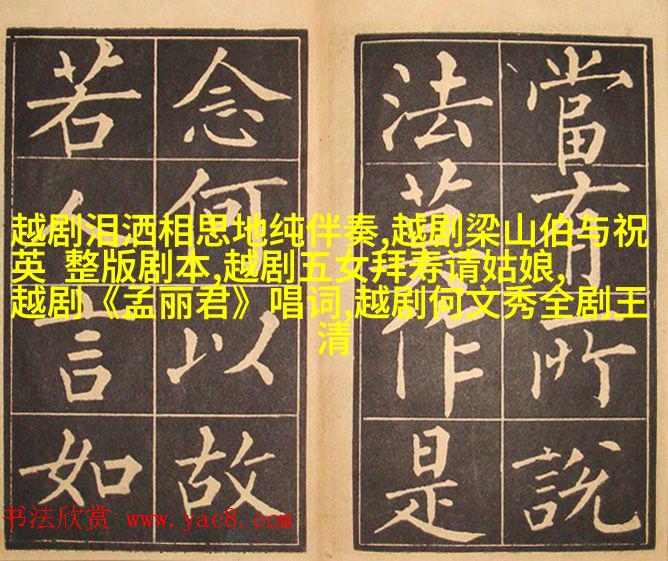 當有所說
法莫作是
念何以故
若人言如
越剧泪洒相思地纯伴奏,越剧梁山伯与祝
英 整版剧本,越剧五女拜寿请姑娘,
越剧《孟丽君》唱词,越剧何文秀全剧王
清
书法欣赏 www.yac8.com